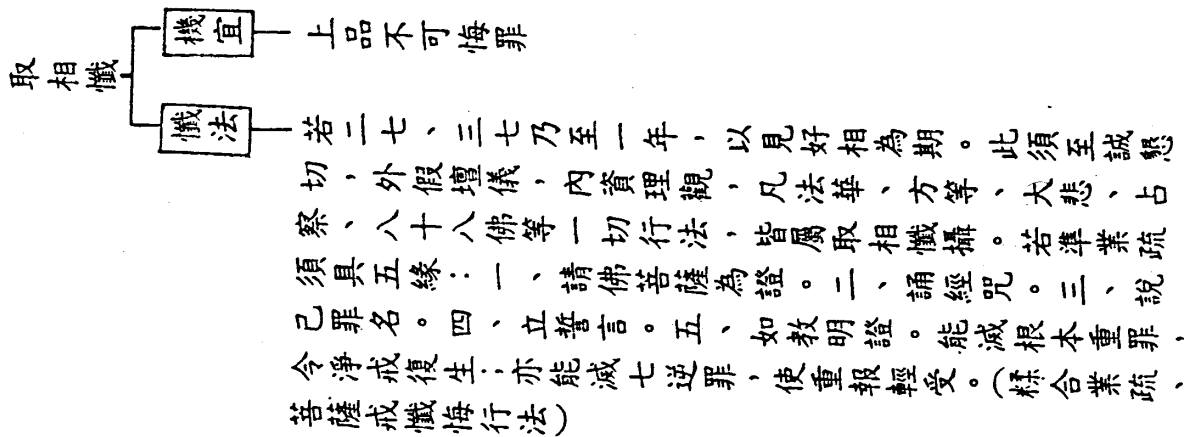 取相懺
機宜
上品不可悔罪
懺法
若二七、三七乃至一年，以見好相為期。此須至誠懇
切，外假壇儀，內資理觀，凡法華、方等、大悲、占
察、八十八佛等一切行法，皆屬取相懺攝。若準業疏
須具五緣：一、請佛菩薩為證。二、誦經咒。三、說
己罪名。四、立誓言。五、如教明證。能滅根本重罪，
令淨戒復生；亦能滅七逆罪，使重報輕受。（糅合業疏、
菩薩戒懺悔行法）